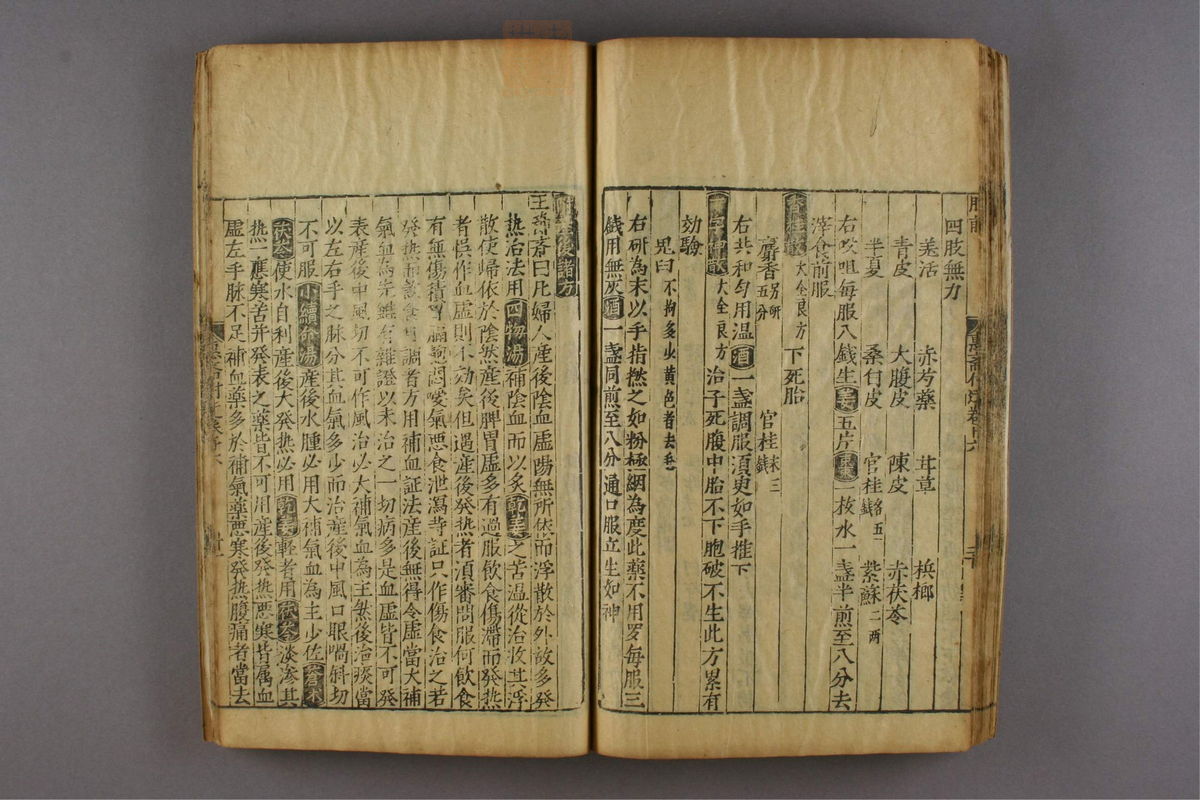 四肢無力
羗活 赤芍藥 甘草 梹榔
青皮 大腹皮 陳皮 赤茯苓
半夏 桑白皮 官桂 各五錢 紫蘇 二两
右㕮咀每服八錢生姜五片 枚水一盞半煎至八分去
滓食前服
香桂散 大全良方 下死胎
麝香 另研五分 官桂 末三錢
右共和匀用温酒一盞調服湏㬰如手推下
神散 大全良方 治子死腹中胎不下胞破不生此方累有
効驗
皂白 不拘多少黄色者去
右研為末以手指撚之如粉極細為度此藥不用罗每服三
錢用無灰酒一盞同煎至八分通口服立生如神
産後諸方
王斎曰凡婦人産後陰血虚陽無所依而浮散於外故多發
熱治法用四物湯補陰血而以炙乾姜之苦温從治收其浮
散使歸依於陰然産後脾胃虚多有過服飲食傷滞而發热
者悮作血虚則不効矣但遇産後發热者湏審問服何飲食
有無傷積胸膈飽悶噯氣悪食泄瀉等証只作傷食治之若
發热而飲食調者方用補血証法産後無得令虚當大補
氣血為先雖有雜證以末治之一切病多是血虚皆不可發
表産後中風切不可作風治必大補氣血為主然後治痰當
以左右手之脉分其血氣多少而治産後中風口眼喎斜切
不可服小續命湯産後水腫必用大補氣血為主少佐蒼朮
茯苓使水自利産後大發热必用乾姜輕者用茯苓淡滲其
热一應寒苦并發表之藥皆不可用産後發热悪寒皆属血
虚左手脉不足補血藥多於補氣藥悪寒發热腹痛者當去